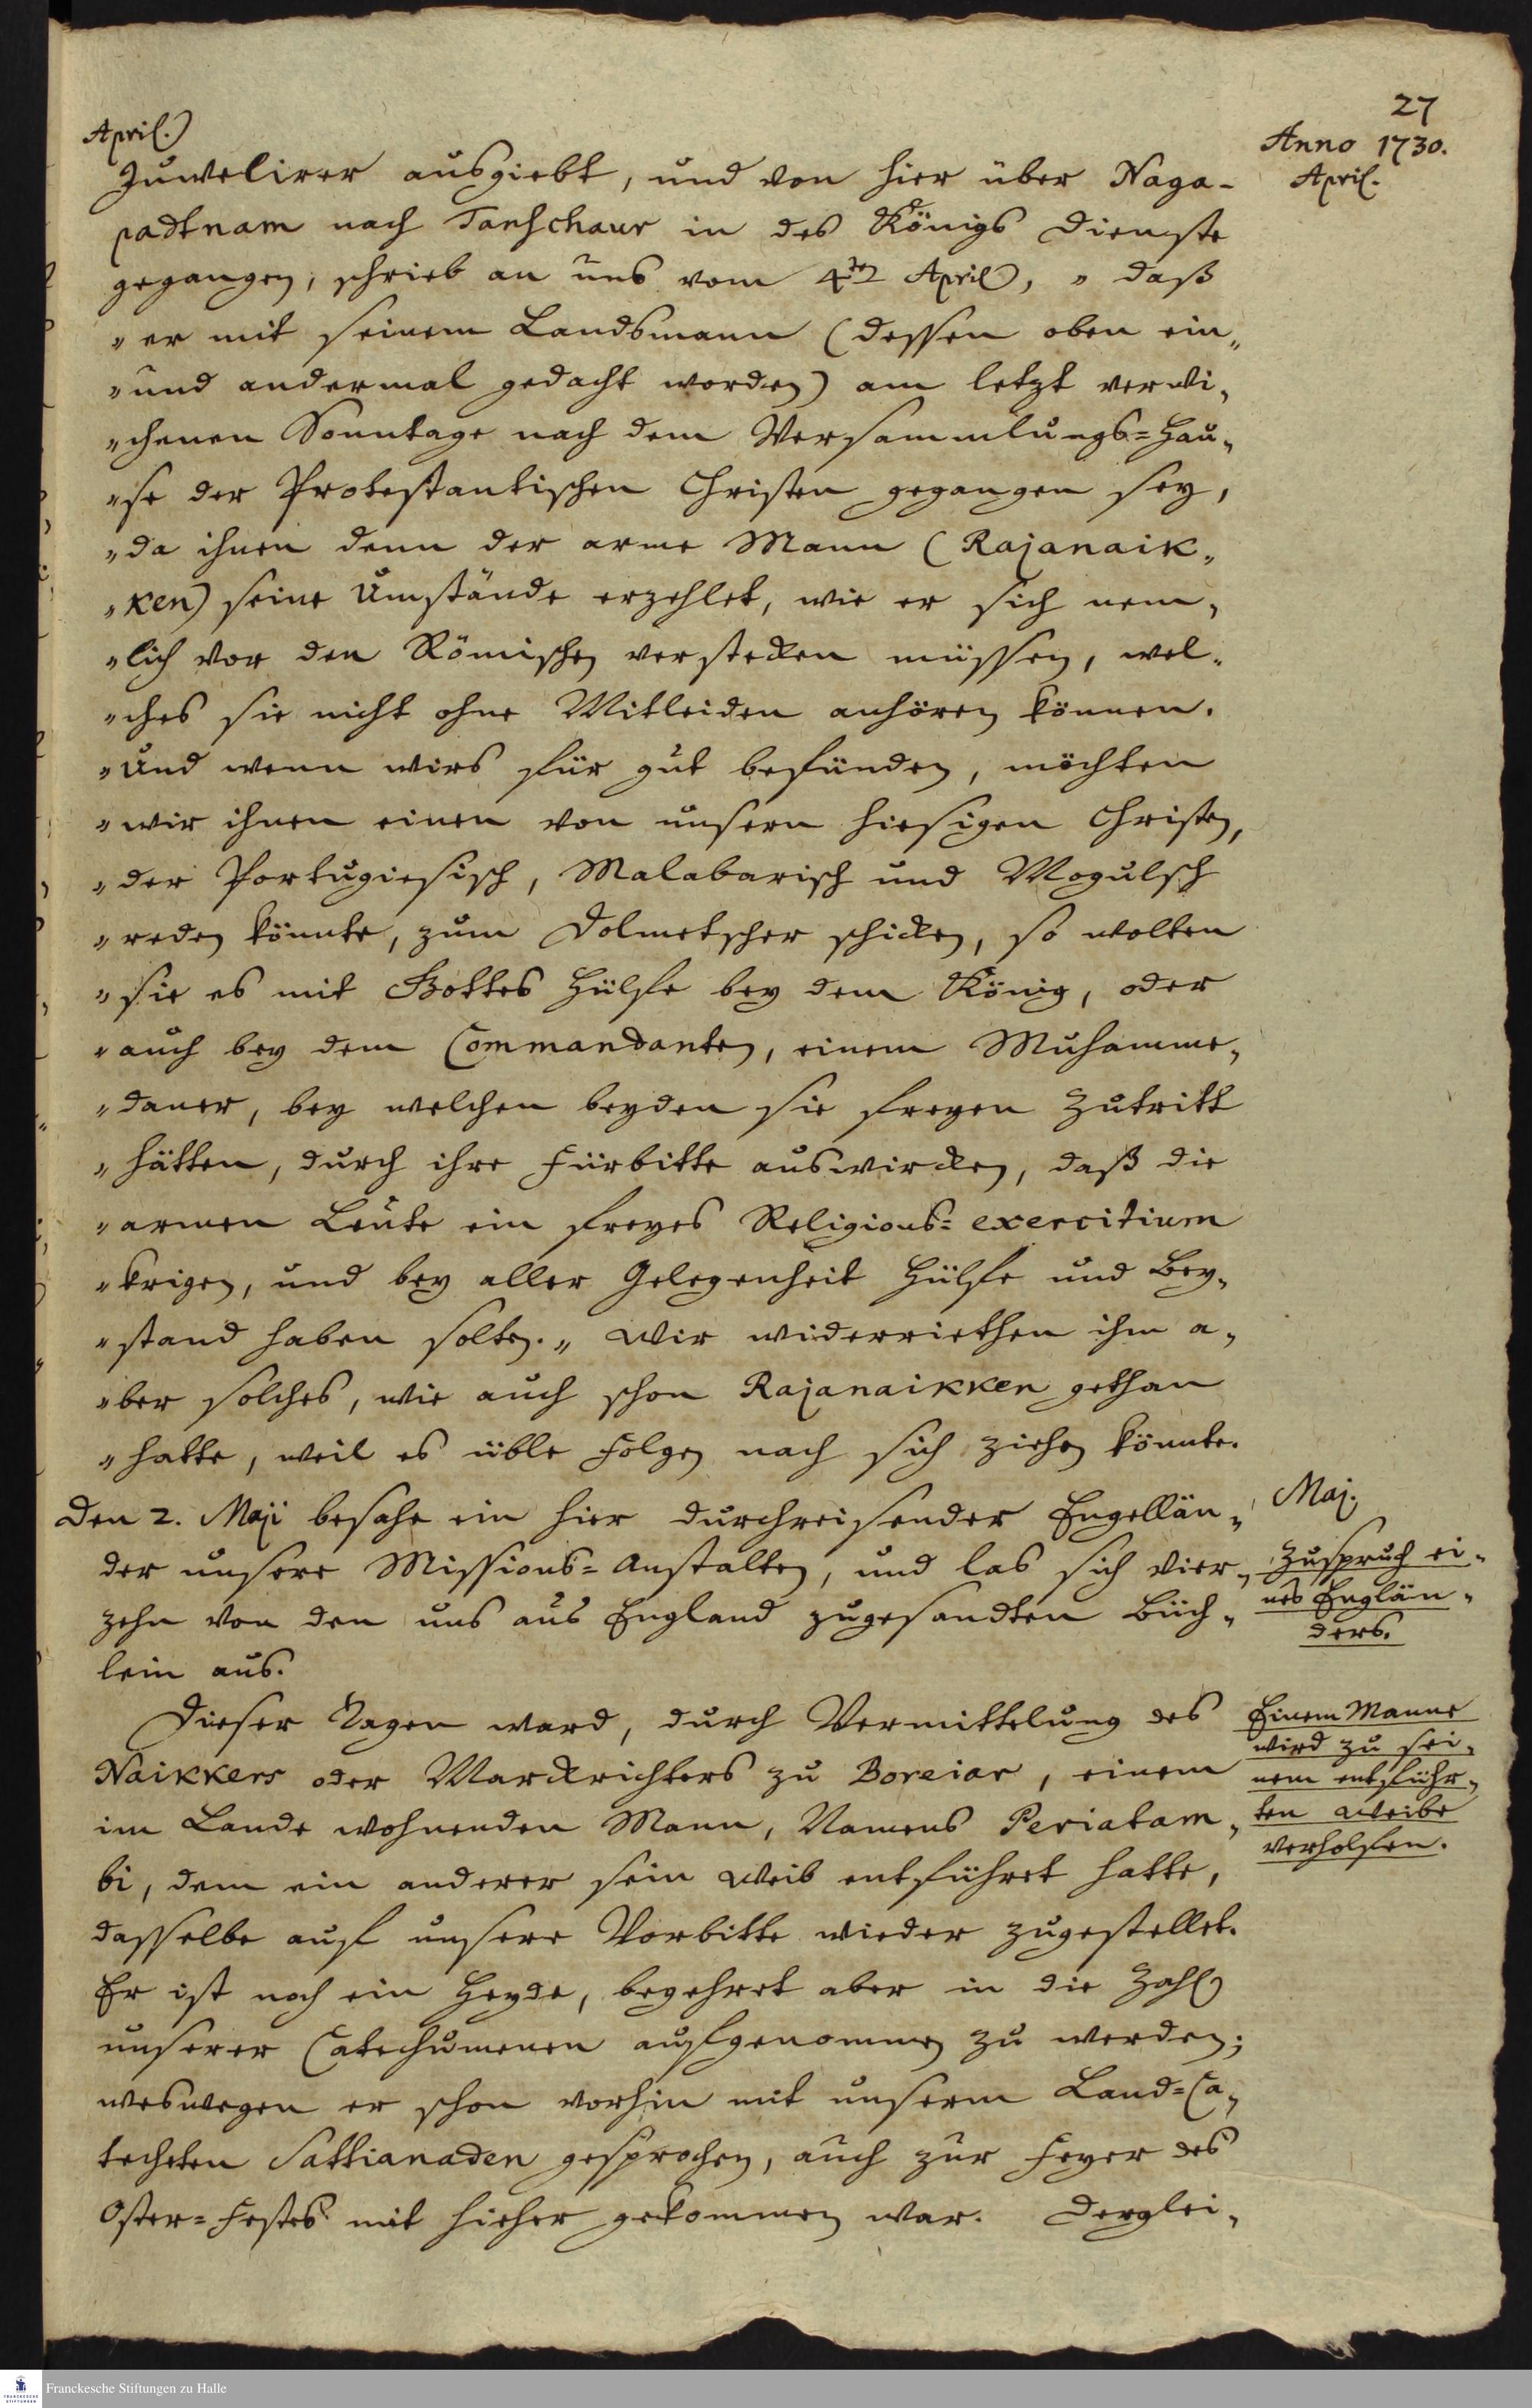 27
Anno 1730.
April.
April.
Juwelirer ausgiebt, und von hier über Naga-
padtnam nach Tanschaur in des Königs Dienste
gegangen, schrieb an uns vom 4ten April, „ daß
„ er mit seinem Landsmann (dessen oben ein„
„ und andermal gedacht worden) am letzt verwi„
„ chenen Sonntage nach dem Versammlungs=Hau„
„ se der Protestantischen Christen gegangen sey,
„ da ihnen denn der arme Mann (Rajanaik„
„ ken) seine Umstände erzehlet, wie er sich nem„
„ lich vor den Römischen verstecken müssen, wel„
„ ches sie nicht ohne Mitleiden anhören können.
„ Und wenn wirs für gut befünden, möchten
„ wir ihnen einen von unsern hiesigen Christen,
„ der Portugiesisch, Malabarisch und Mogulsch
„ reden könnte, zum Dolmetscher schicken, so wolten
„ sie es mit Gottes Hülfe bey dem König, oder
„ auch bey dem Commandanten, einem Muhamme„
„ daner, bey welchen beyden sie freyen Zutritt
„ hätten, durch ihre Fürbitte auswircken, daß die
„ armen Leute ein freyes Religions=exercitium
„ krigen, und bey aller Gelegenheit Hülfe und Bey„
„ stand haben solten. „ Wir widerriethen ihm a„
„ ber solches, wie auch schon Rajanaikken gethan
„ hatte, weil es üble Folgen nach sich ziehen könnte.
Den 2. Maji besahe ein hier durchreisender Engellän„
der unsere Missions=Anstalten, und las sich vier„
zehn von den uns aus England zugesandten Büch„
lein aus.
Maj.
Zuspruch ei„
nes Englän„
ders.
Dieser Tagen ward, durch Vermittelung des
Naikkers oder Marckrichters zu Boreiar, einem
im Lande wohnenden Mann, Namens Periatam„
bi, dem ein anderer sein Weib entführet hatte,
dasselbe auf unsere Vorbitte wieder zugestellet.
Er ist noch ein Heyde, begehret aber in die Zahl
unserer Catechumenen aufgenommen zu werden;
weswegen er schon vorhin mit unserm Land=Ca„
techeten Sattianaden gesprochen, auch zur Feyer des
Oster=Festes mit hieher gekommen war. Derglei„
Einem Manne
wird zu sei„
nem entführ„
ten Weibe
verholfen.
Franckesche Stiftungen zu Halle